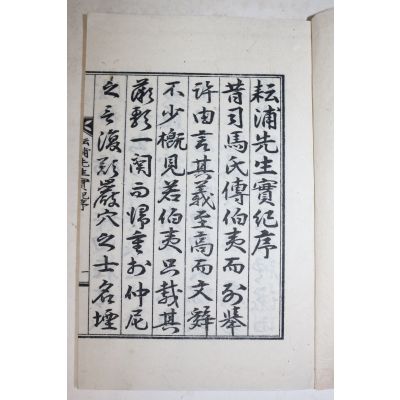 耘浦先生實紀序
昔司馬氏傳伯夷而列舉
許由言其義至高而文辭
不少概見若伯夷只載其
薇歌一闋而歸重於仲尼
之言復歎巖穴之士名堙
耘浦先生實紀序
一